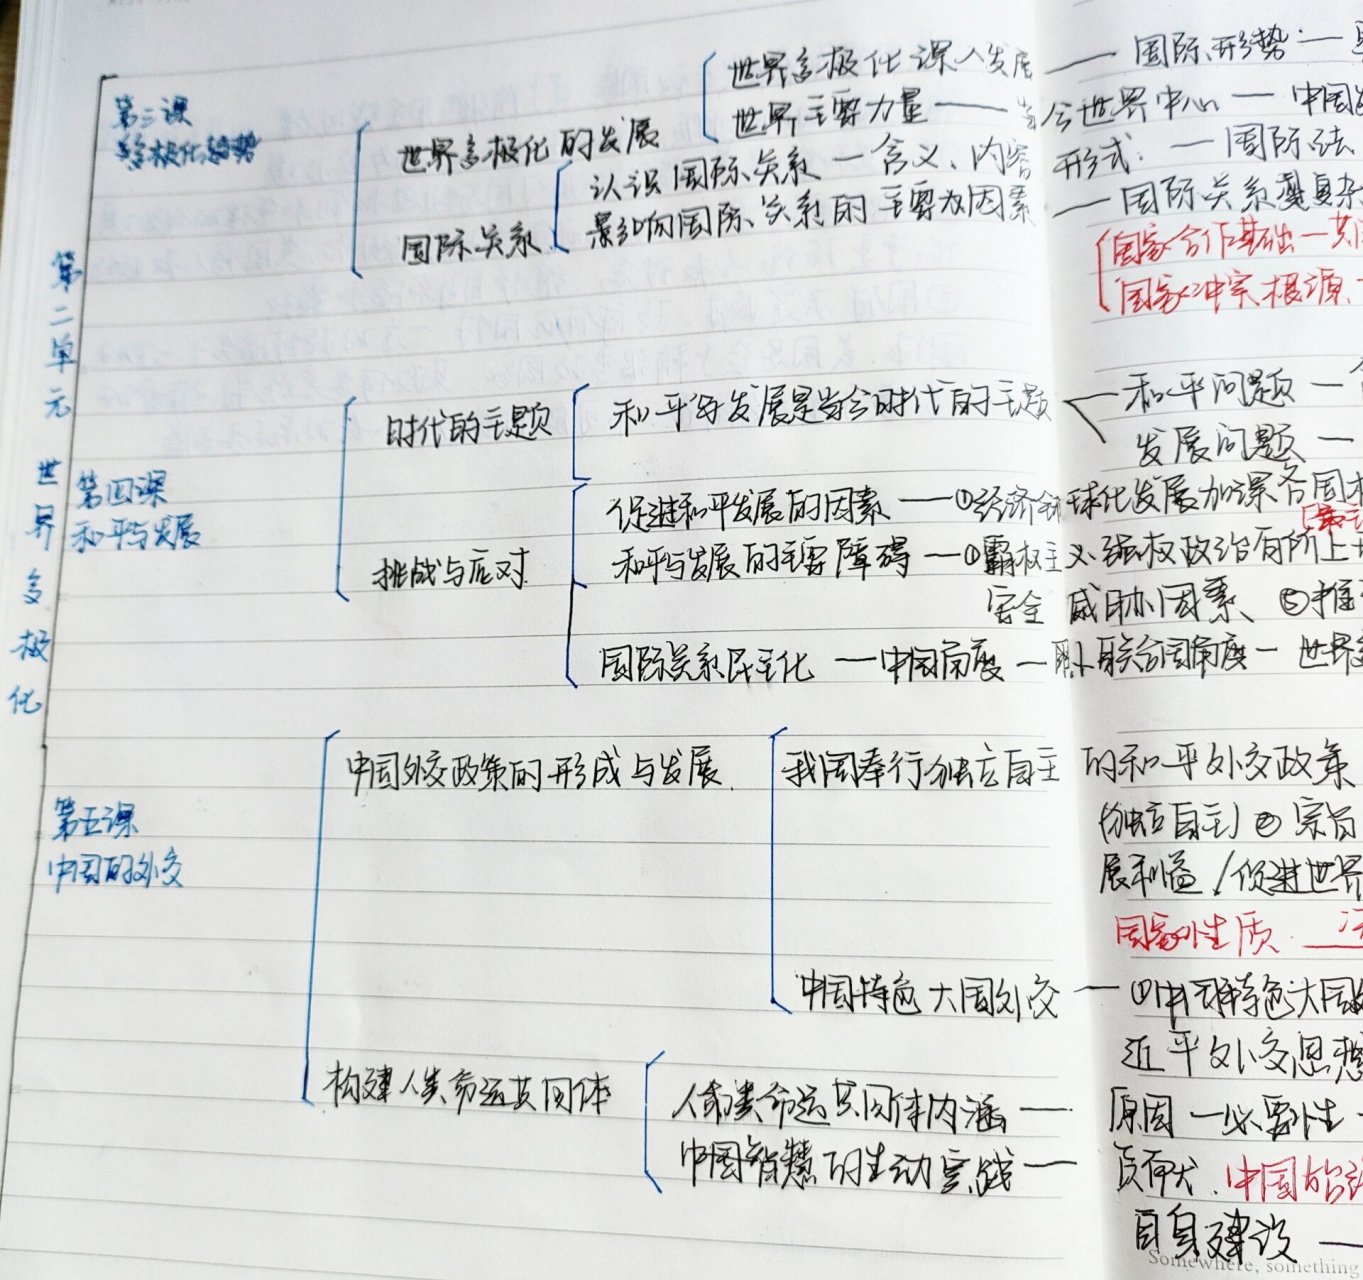 第二单元 世界多极化
第三课
多极化趋势
世界多极化的发展
世界多极化深入发展 — 国际形势:—
世界主要力量 — 当今世界中心 — 中国
国际关系
认识国际关系 — 含义、内容 形式: — 国际法
影响国际关系的主要因素 — 国际关系复杂
国家合作基础—共同
国家冲突根源
第四课
和平与发展
时代的主题
和平与发展是当今时代的主题
和平问题 —
发展问题 —
挑战与应对
促进和平发展的因素 — ①经济全球化发展加深各国
和平与发展的主要障碍 — ①霸权主义 强权政治有所上升
安全威胁因素、
国际关系民主化 — 中国角度 — 联合国角度 — 世界
第五课
中国的外交
中国外交政策的形成与发展
我国奉行独立自主的和平外交政策
(独立自主) ② 宗旨
展利益/促进世界
国家性质
中国特色大国外交 — ①中国特色大国
近平外交思想
构建人类命运共同体
人类命运共同体内涵 — 原因 — 必要性
中国智慧的生动实践 — 贡献. 中国
自身建设 —
Somewhere, something